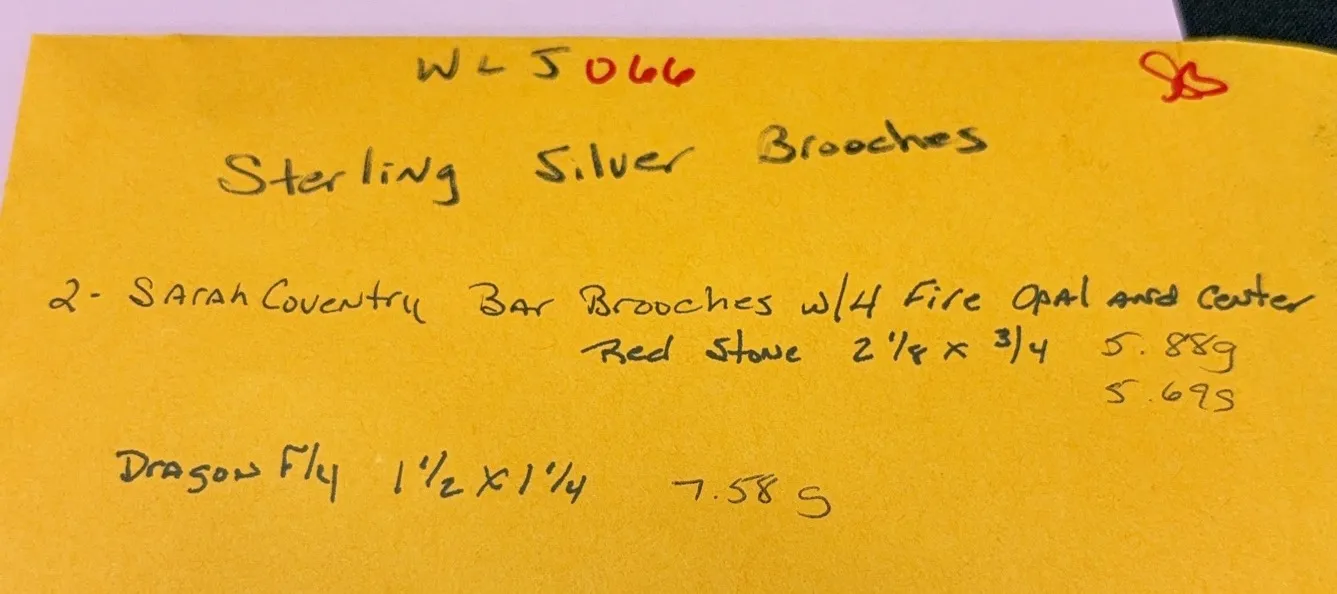 WLJ 066
Sterling Silver Brooches
2- Sarah Coventry Bar Brooches w/4 Fire Opal and Center
Red Stone 2 1/8 x 3/4 5.88g
5.69g
Dragon Fly 1 1/2 x 1 1/4 7.58 g